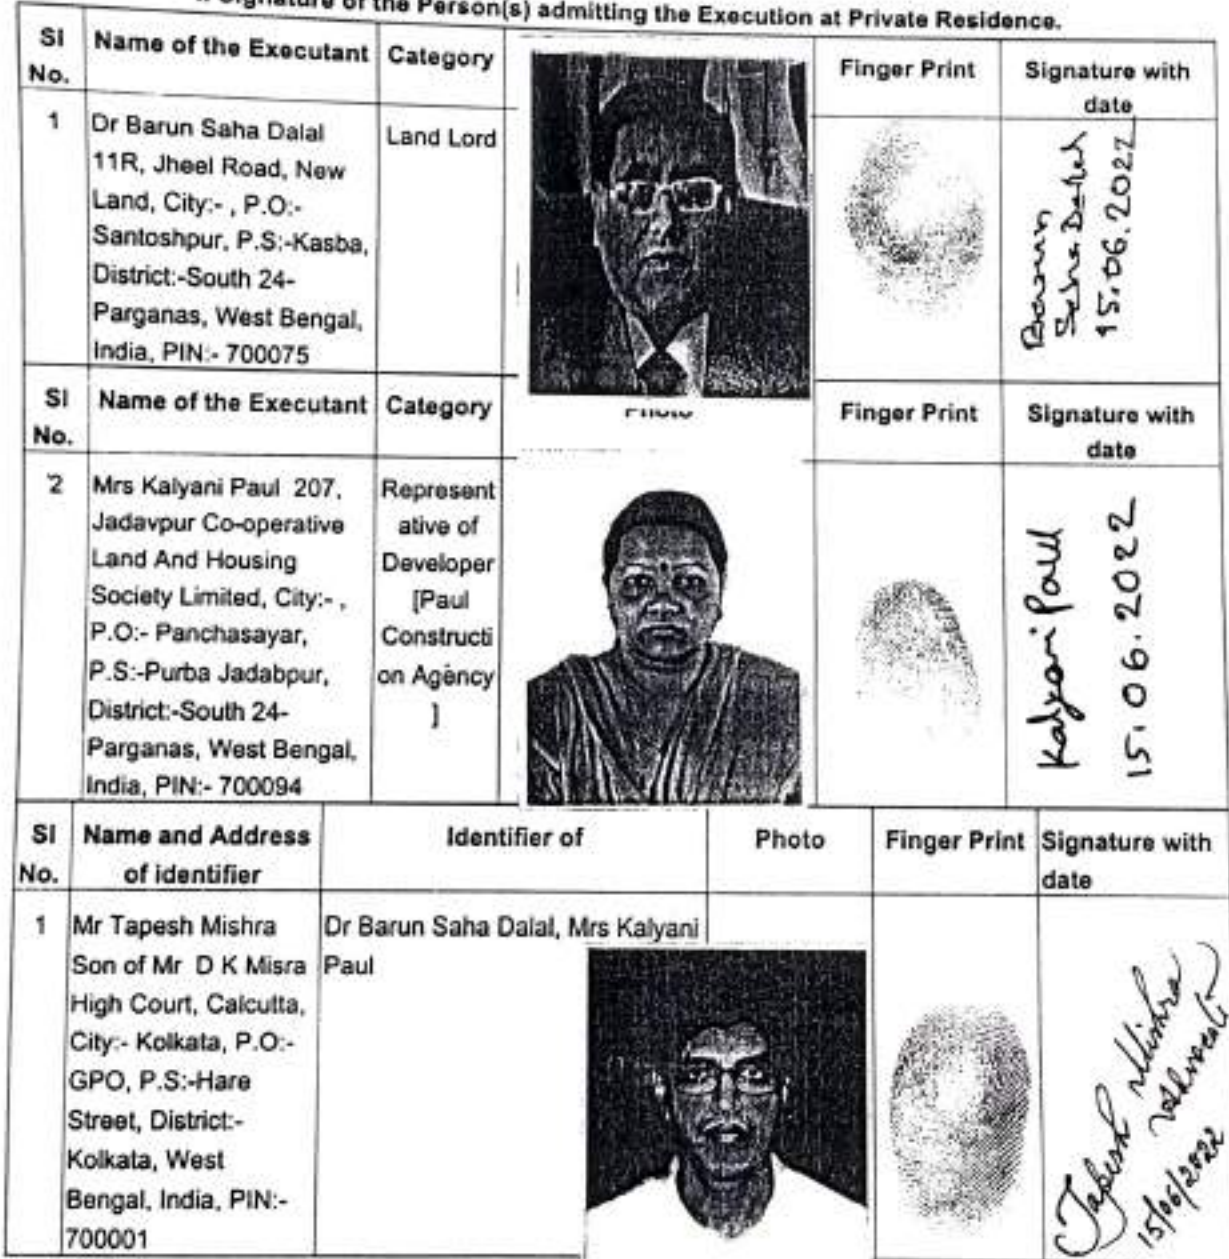 Signature of the Person(s) admitting the Execution at Private Residence.
Sl No. Name of the Executant Category Finger Print Signature with date
1 Dr Barun Saha Dalal
11R, Jheel Road, New
Land, City:- , P.O:-
Santoshpur, P.S:-Kasba,
District:-South 24-
Parganas, West Bengal,
India, PIN:- 700075
Land Lord
Barun
Saha Dalal
15.06.2022
Sl No. Name of the Executant Category Photo Finger Print Signature with date
2 Mrs Kalyani Paul 207,
Jadavpur Co-operative
Land And Housing
Society Limited, City:- ,
P.O:- Panchasayar,
P.S:-Purba Jadabpur,
District:-South 24-
Parganas, West Bengal,
India, PIN:- 700094
Represent
ative of
Developer
[Paul
Constructi
on Agency
]
Kalyani Paul
15.06.2022
Sl No. Name and Address of identifier Identifier of Photo Finger Print Signature with date
1 Mr Tapesh Mishra
Son of Mr D K Misra
High Court, Calcutta,
City:- Kolkata, P.O:-
GPO, P.S:-Hare
Street, District:-
Kolkata, West
Bengal, India, PIN:-
700001
Dr Barun Saha Dalal, Mrs Kalyani
Paul
Tapesh Mishra
Advocate
15/06/2022